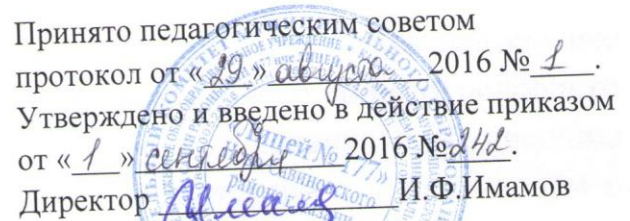 Принято педагогическим советом
протокол от «29» августа 2016 № 1.
Утверждено и введено в действие приказом
от «1» сентября 2016 № 242.
Директор И.Ф.Имамов
Лицей № 177»
района г.Казани